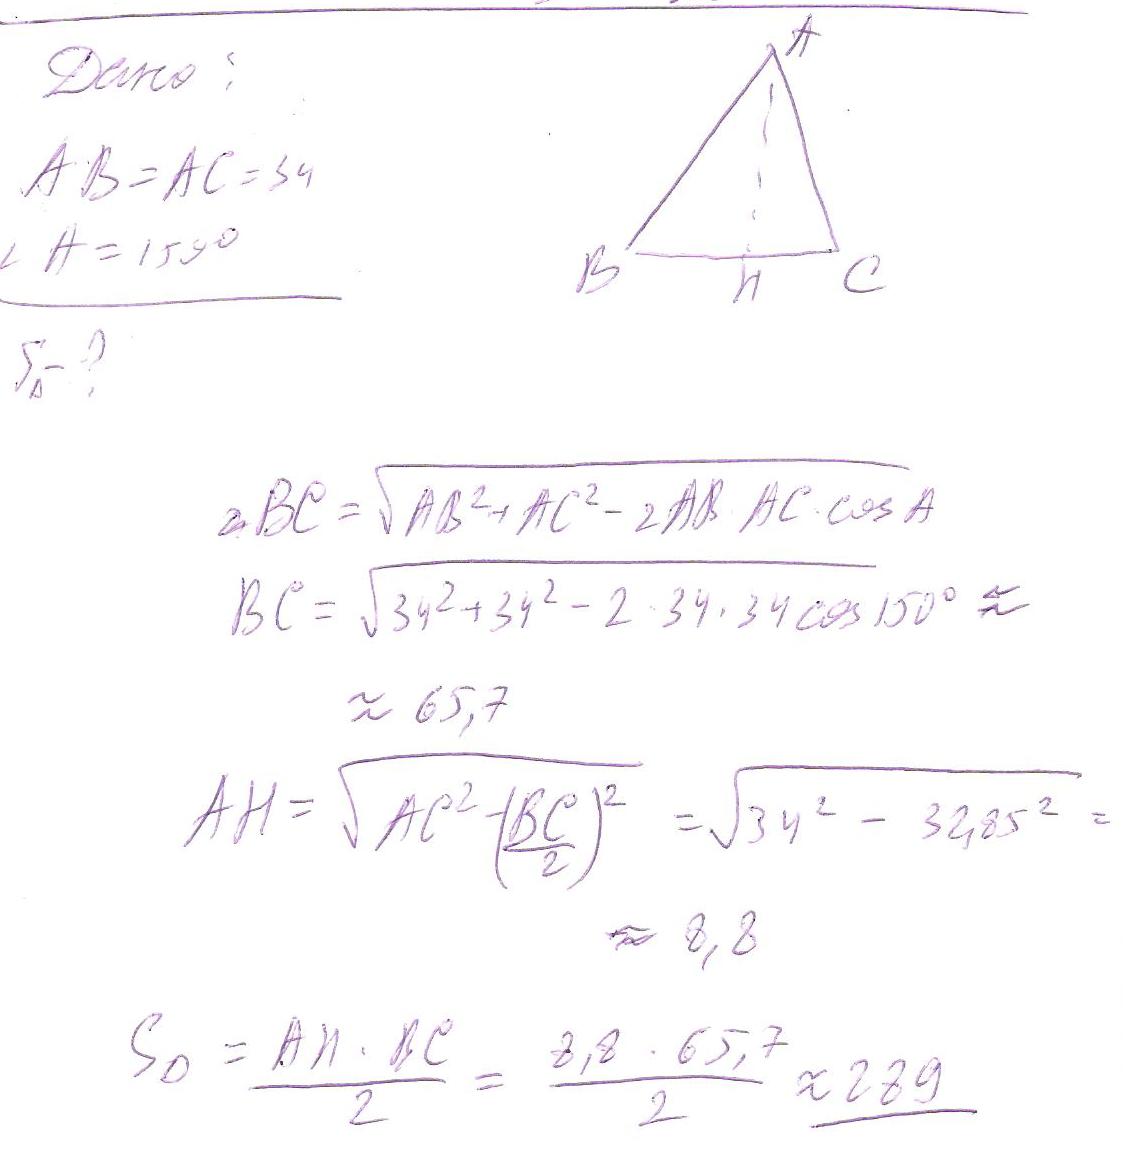 Дано:
AB = AC = 34
∠ A = 150°
S△ - ?
A
B H C
BC = √AB² + AC² - 2AB · AC · cos A
BC = √34² + 34² - 2 · 34 · 34 cos 150° ≈
≈ 65,7
AH = √AC² - (BC/2)² = √34² - 32,85² =
≈ 8,8
S△ = AH · BC / 2 = 8,8 · 65,7 / 2 ≈ 289